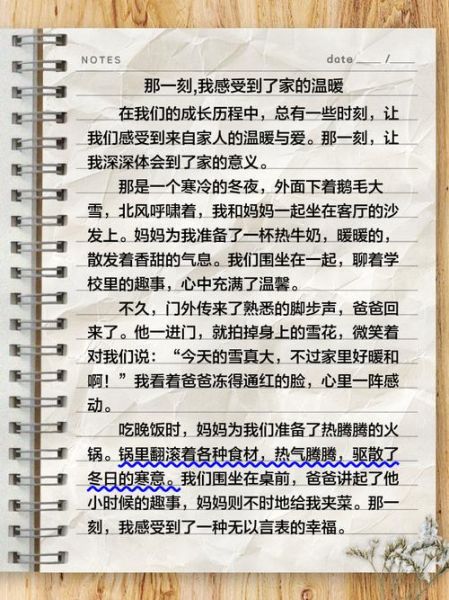 NOTES
date ____ /____
那一刻,我感受到了家的温暖
在我们的成长历程中，总有一些时刻，让
我们感受到来自家人的温暖与爱。那一刻，让
我深深体会到了家的意义。
那是一个寒冷的冬夜，外面下着鹅毛大
雪，北风呼啸着，我和妈妈一起坐在客厅的沙
发上。妈妈为我准备了一杯热牛奶，暖暖的，
散发着香甜的气息。我们围坐在一起，聊着学
校里的趣事，心中充满了温馨。
不久，门外传来了熟悉的脚步声，爸爸回
来了。他一进门，就拍掉身上的雪花，微笑着
对我们说：“今天的雪真大，不过家里好暖和
啊！”我看着爸爸冻得通红的脸，心里一阵感
动。
吃晚饭时，妈妈为我们准备了热腾腾的火
锅。锅里翻滚着各种食材，热气腾腾，驱散了
冬日的寒意。我们围坐在桌前，爸爸讲起了他
小时候的趣事，妈妈则不时地给我夹菜。那一
刻，我感受到了一种无以言表的幸福。